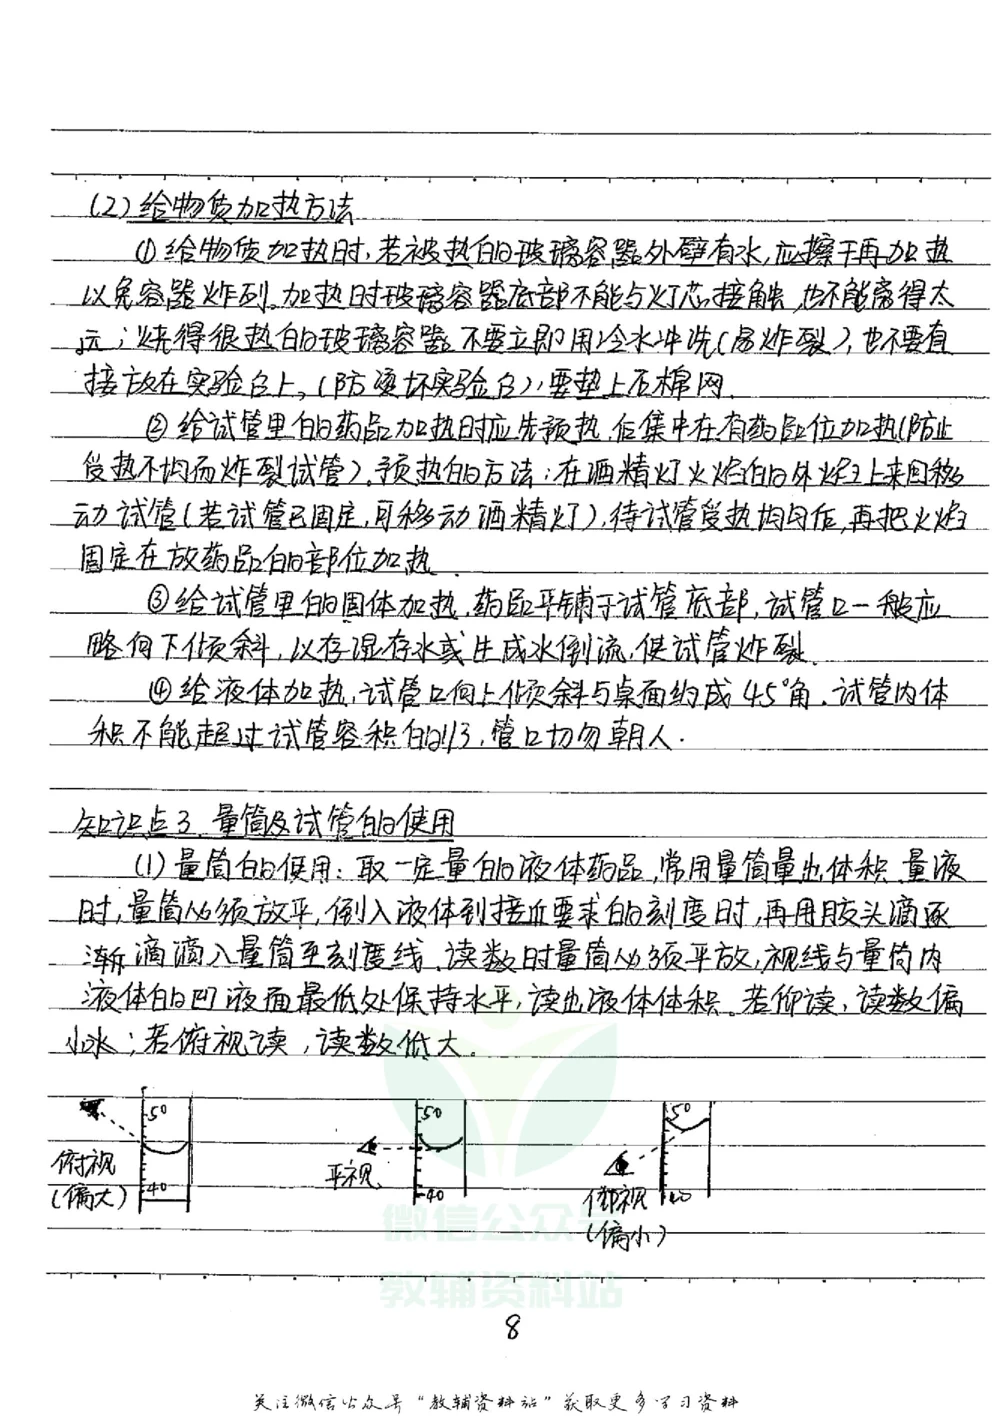 (2)给物质加热方法
①给物质加热时,若被热的玻璃容器外壁有水,应擦干再加热
以免容器炸列.加热时玻璃容器底部不能与灯芯接触,也不能离得太
远;烧得很热的玻璃容器不要立即用冷水冲洗(易炸裂),也不要直
接放在实验台上,(防烫坏实验台),要垫上石棉网.
②给试管里的药品加热时应先预热,后集中在有药品位加热(防止
受热不均而炸裂试管).预热的方法:在酒精灯火焰的外焰上来回移
动试管(若试管已固定,可移动酒精灯),待试管受热均匀后,再把火焰
固定在放药品的部位加热.
③给试管里的固体加热,药品平铺于试管底部,试管口一般应
略向下倾斜,以存湿存水或生成水倒流,使试管炸裂.
④给液体加热,试管口向上倾斜与桌面约成45°角.试管内体
积不能超过试管容积的1/3,管口切勿朝人.
知识点3.量筒及试管的使用
(1)量筒的使用:取一定量的液体药品,常用量筒量出体积.量液
时,量筒必须放平,倒入液体到接近要求的刻度时,再用胶头滴逐
渐滴滴入量筒至刻度线.读数时量筒必须平放,视线与量筒内
液体的凹液面最低处保持水平,读出液体体积。若仰读,读数偏
小;若俯视读,读数低大。
50 50 50
俯视 平视 仰视
(偏大) 40 40 40
(偏小)
微信公众号
教辅资料站
8
关注微信公众号“教辅资料站”获取更多学习资料